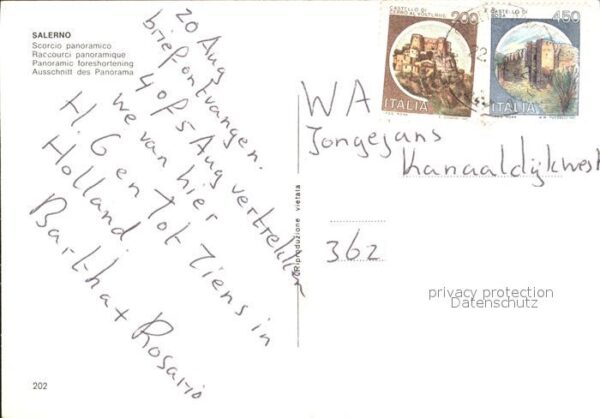 SALERNO
Scorcio panoramico
Raccourci panoramique
Panoramic foreshortening
Ausschnitt des Panorama
20 Aug
brief ontvangen.
4 of 5 Aug vertrekken
we van hier
H. G en tot Ziens in
Holland.
Bartha + Rosario
202
© Riproduzione vietata
CASTELLO DI
CERRO AL VOLTURNO
200
ITALIA
CASTELLO DI
BOSA
450
ITALIA
WA
Jongejans
Kanaaldijkwest
362
privacy protection
Datenschutz